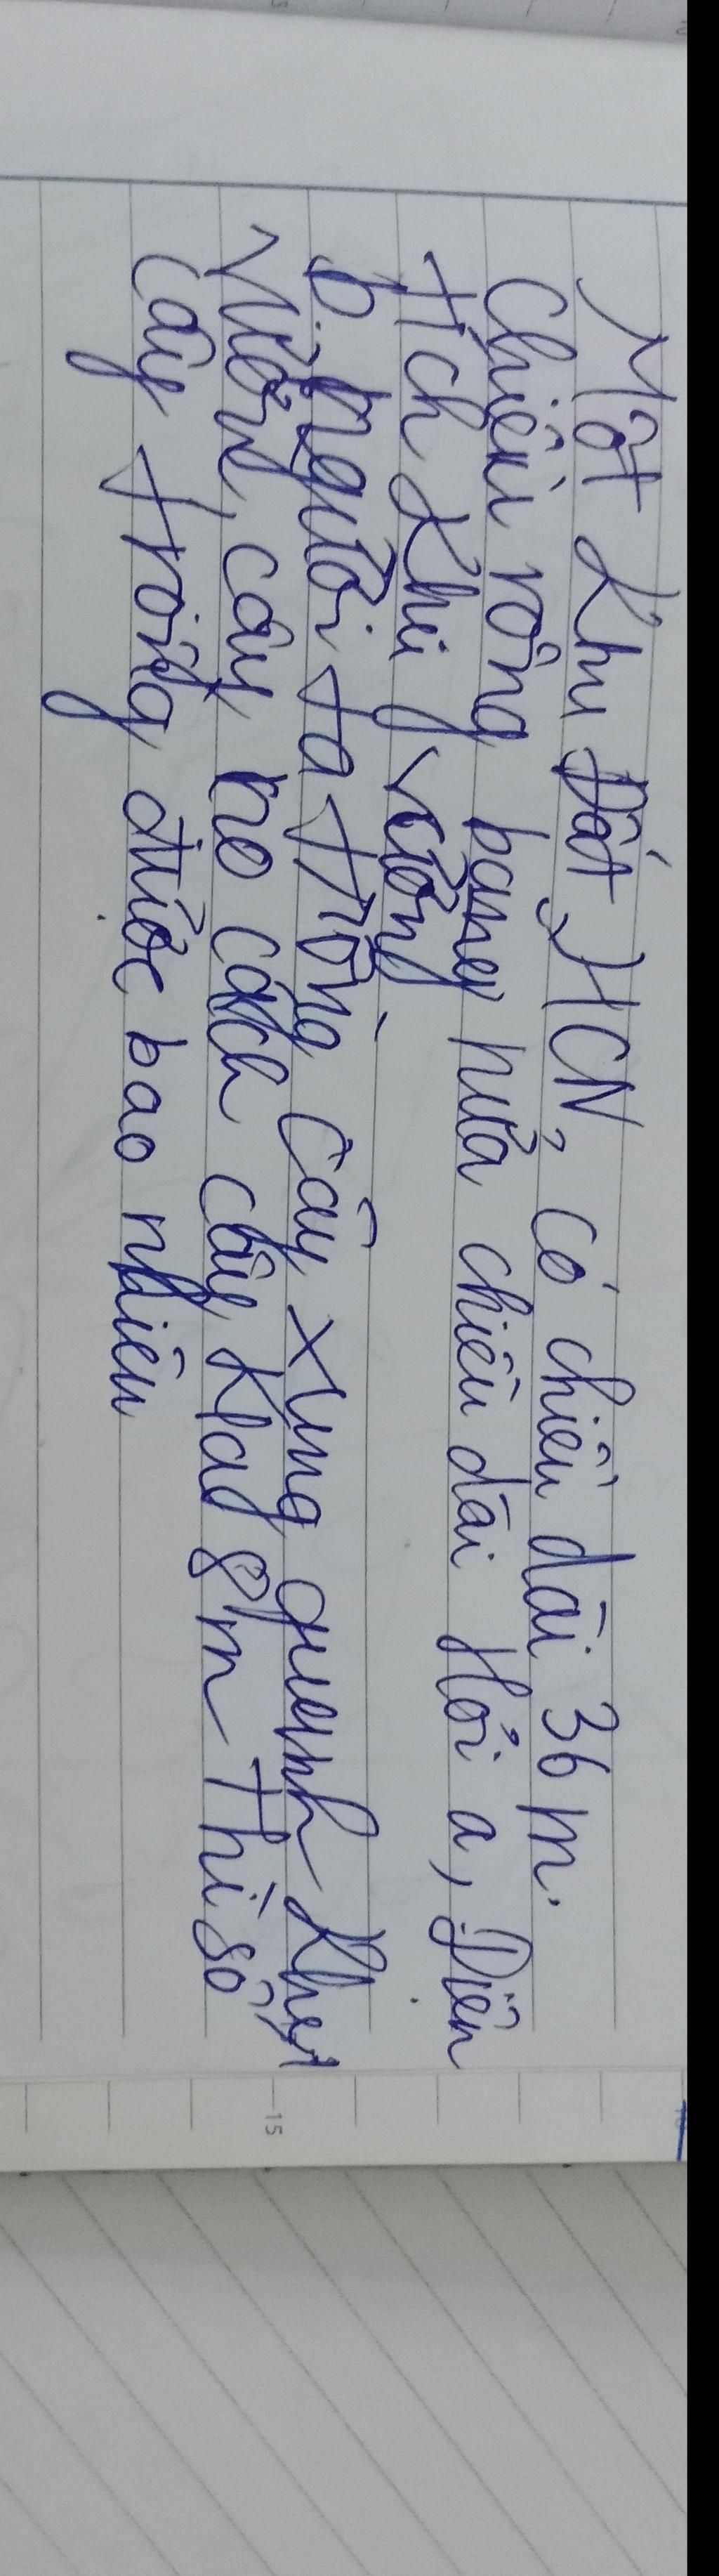 Một Khu Đất HCN, có chiều dài 36 m.
Chiều rộng bằng nửa chiều dài Hỏi a, Diên
tích Khu vườn
b. người ta trồng Cây xung quanh Khu
vườn, cây nọ cách cây kia 8m Thì số
cây trồng được bao nhiêu
15